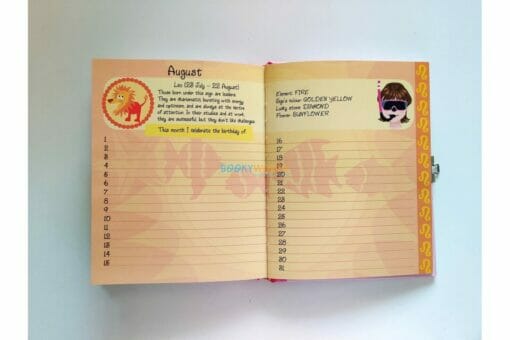 August
Leo (23 July - 22 August)
Those born under this sign are leaders.
They are charismatic, bursting with energy
and optimism, and are always at the centre
of attention. In their studies and at work,
they are successful, but they don't like challenges.
This month I celebrate the birthday of:
1
2
3
4
5
6
7
8
9
10
11
12
13
14
15
Element: FIRE
Sign's colour: GOLDEN YELLOW
Lucky stone: DIAMOND
Flower: SUNFLOWER
16
17
18
19
20
21
22
23
24
25
26
27
28
29
30
31